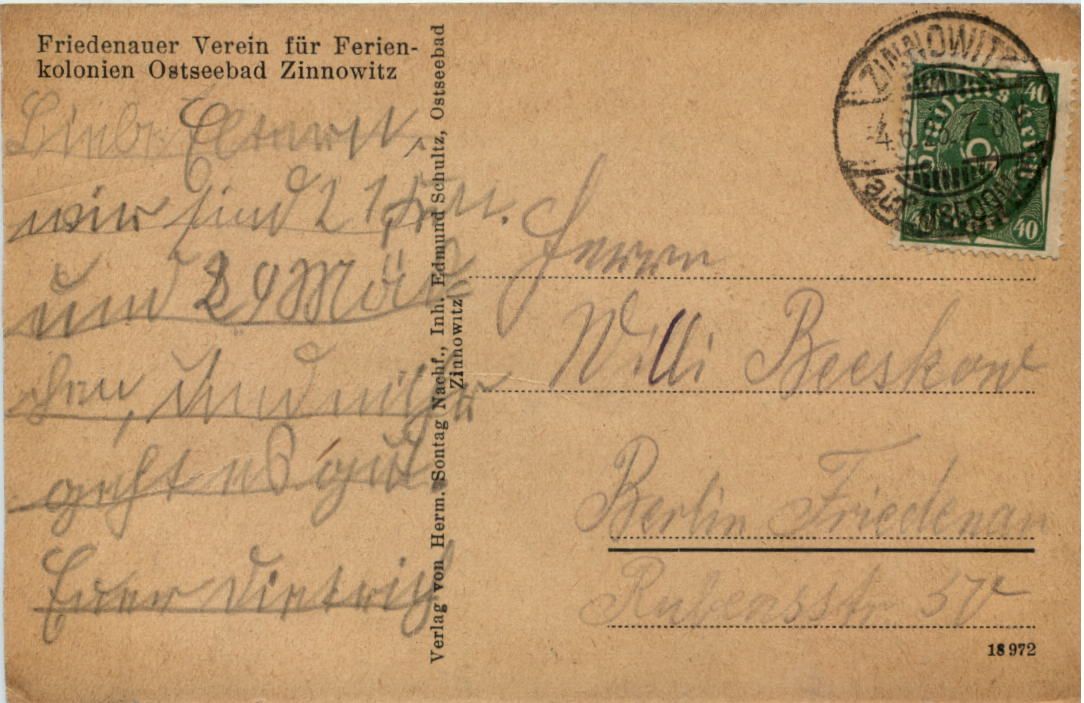 Friedenauer Verein für Ferien-
kolonien Ostseebad Zinnowitz
Liebe Eltern,
wir sind 21
und 29 Mäd-
chen, und mir
geht es gut.
Euer Dietrich
Verlag von Herm. Sontag Nachf., Inh. Edmund Schultz, Ostseebad
Zinnowitz
ZINNOWITZ
auf USEDOM
Deutsches Reich
40
40
Herrn
Willi Beeskow
Berlin Friedenau
Rubensstr. 37
18972